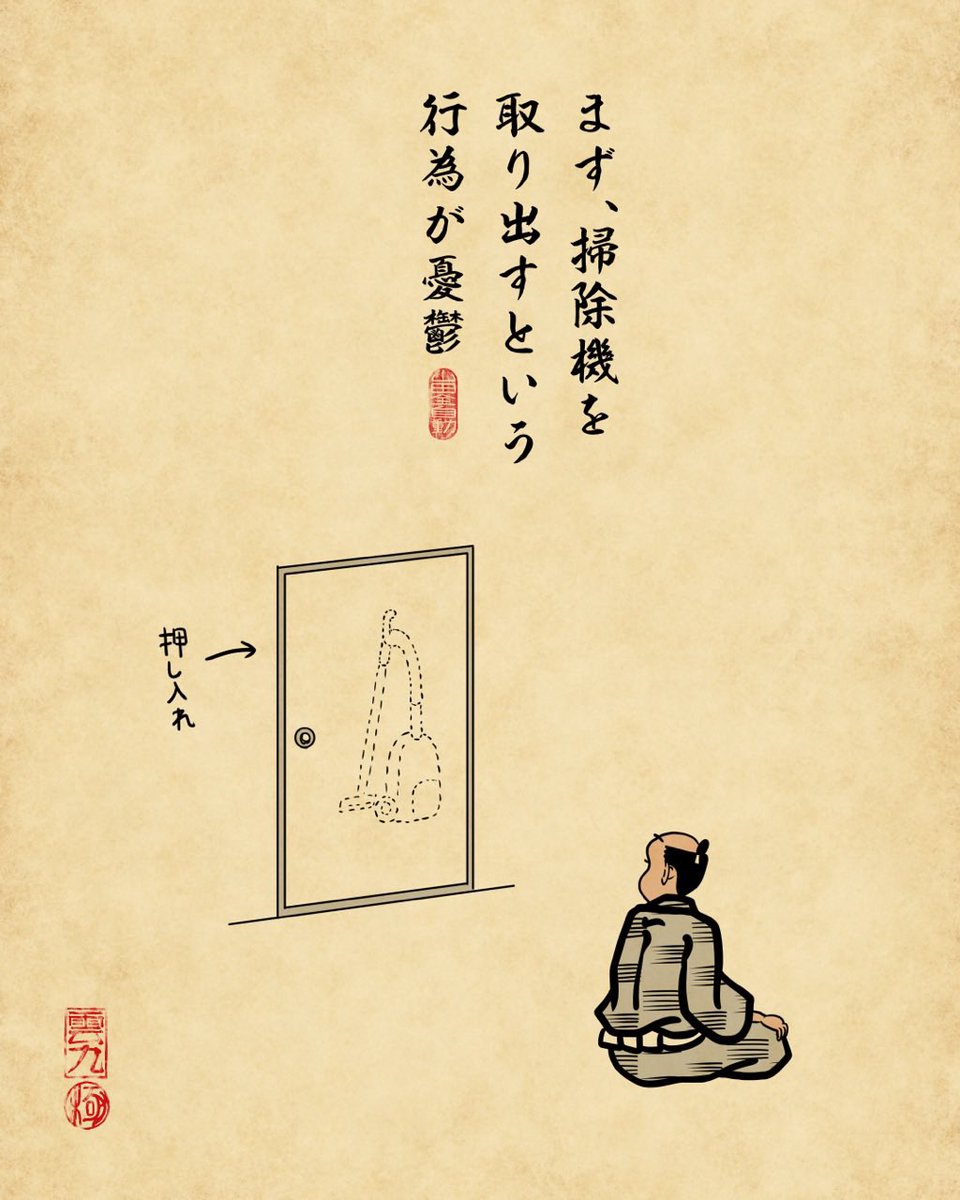 まず、掃除機を
取り出すという
行為が憂鬱
押し入れ